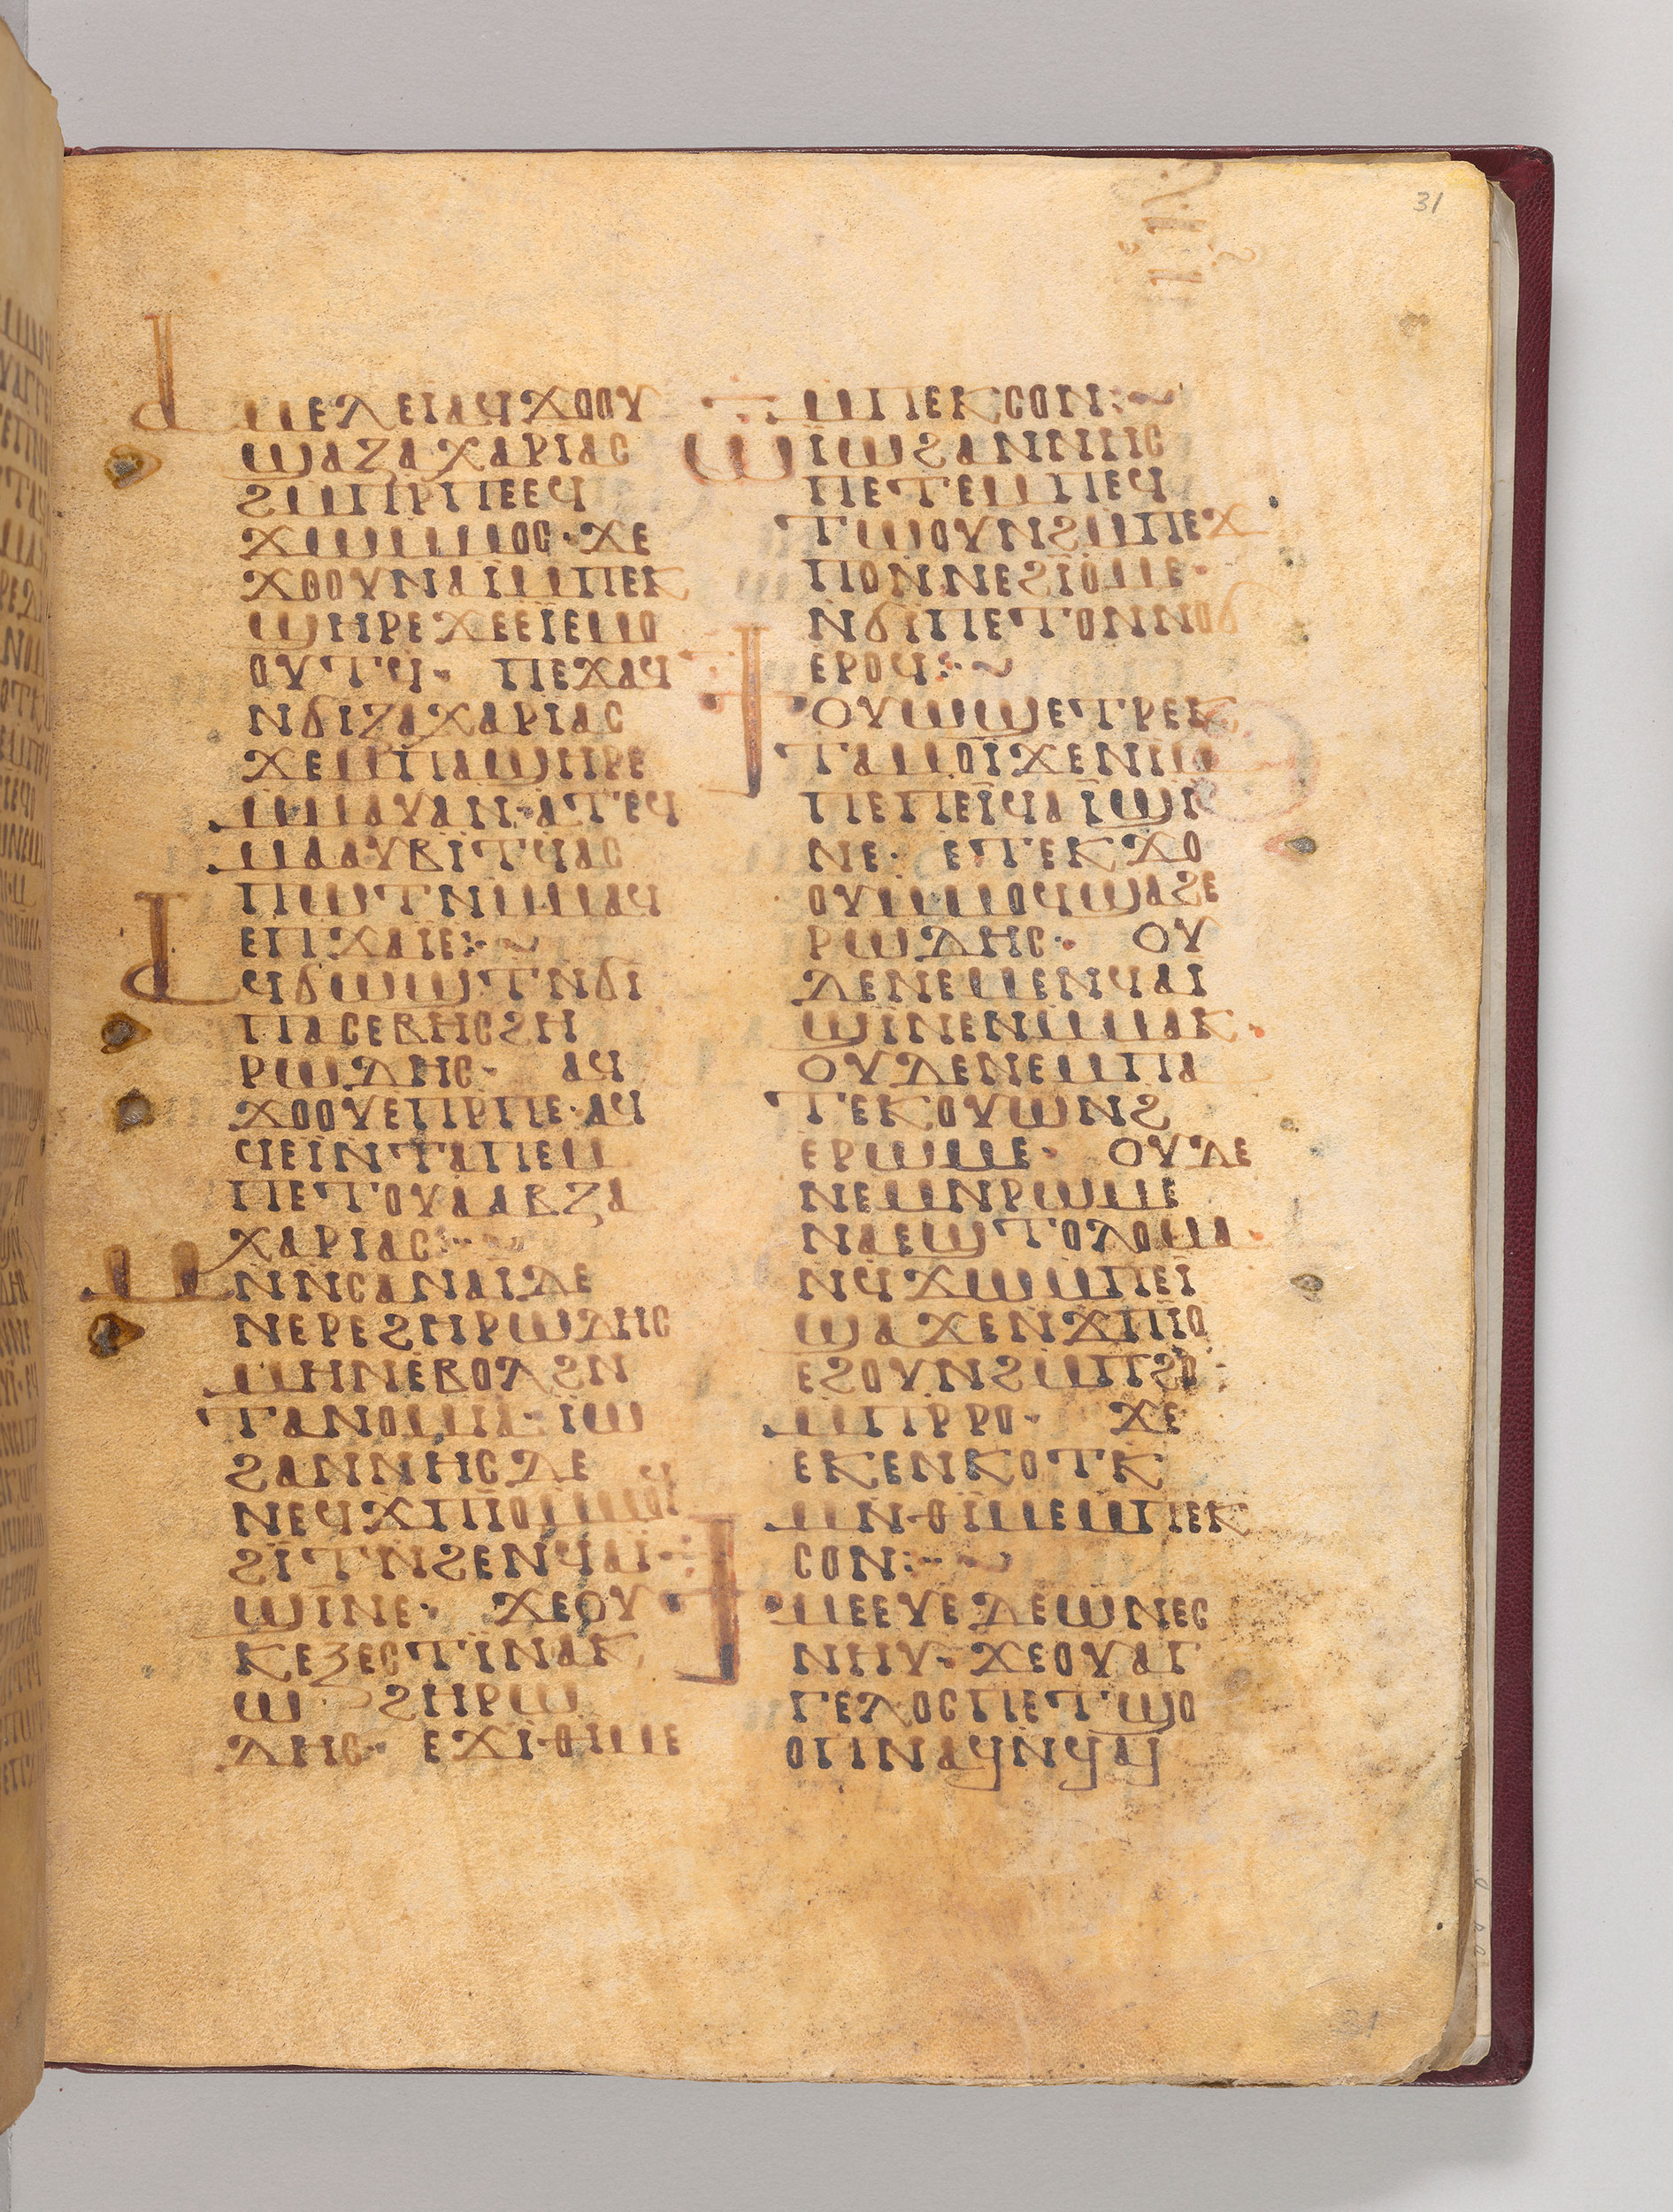 31
ⲁⲙⲉⲗⲉⲓⲁϥϫⲟⲟⲩ
ϣⲁⲍⲁⲭⲁⲣⲓⲁⲥ
ϩⲙⲡⲣⲡⲉⲉϥ
ϫⲱⲙⲙⲟⲥ· ϫⲉ
ϫⲟⲟⲩⲛⲁⲓⲙⲡⲉⲕ
ϣⲏⲣⲉϫⲉⲉⲓⲉⲙⲟ
ⲟⲩⲧϥ· ⲡⲉϫⲁϥ
ⲛϭⲓⲍⲁⲭⲁⲣⲓⲁⲥ
ϫⲉⲙⲡⲁϣⲏⲣⲉ
ⲙⲙⲁⲩⲁⲛ· ⲁⲧⲉϥ
ⲙⲁⲁⲩⲃⲓⲧϥⲁⲥ
ⲡⲱⲧⲛⲙⲙⲁϥ
ⲉⲡϫⲁⲓⲉ:·~
ⲁϥϭⲱϣⲧⲛϭⲓ
ⲡⲁⲥⲉⲃⲏⲥϩⲏ
ⲣⲱⲇⲏⲥ· ⲁϥ
ϫⲟⲟⲩⲉⲡⲣⲡⲉ· ⲁϥ
ϥⲉⲓⲛⲧⲁⲡⲉⲙ
ⲡⲉⲧⲟⲩⲁⲁⲃⲍⲁ
ⲭⲁⲣⲓⲁⲥ:·~
ⲙⲛⲛⲥⲁⲛⲁⲓⲇⲉ
ⲛⲉⲣⲉϩⲏⲣⲱⲇⲏⲥ
ⲙⲏⲛⲉⲃⲟⲗϩⲛ
ⲧⲁⲛⲟⲙⲓⲁ· ⲓⲱ
ϩⲁⲛⲛⲏⲥⲇⲉ
ⲛⲉϥϫⲡⲓⲟⲙⲙⲟϥ
ϩⲓⲧⲛϩⲉⲛϥⲁⲓ
ϣⲓⲛⲉ· ϫⲉⲟⲩ
ⲕⲉⲝⲉⲥⲧⲓⲛⲁⲕ
ⲱ ϩⲏⲣⲱ
ⲇⲏⲥ· ⲉϫⲓ·ⲑⲓⲙⲉ
ⲙⲡⲉⲕⲥⲟⲛ:·~
ⲱⲓⲱϩⲁⲛⲛⲏⲥ
ⲡⲉⲧⲉⲙⲡⲉϥ
ⲧⲱⲟⲩⲛϩⲙⲡⲉϫ
ⲡⲟⲛⲛⲉϩⲓⲟⲙⲉ·
ⲛϭⲓⲡⲉⲧⲟⲛⲛⲟϭ
ⲉⲣⲟϥ:·~
ϯⲟⲩⲱϣⲉⲧⲣⲉⲕ
ⲧⲁⲙⲟⲓϫⲉⲛⲓⲙ
ⲡⲉⲡⲉⲓϥⲁⲓϣⲓ
ⲛⲉ· ⲉⲧⲉⲕϫⲟ
ⲟⲩⲙⲙⲟϥϣⲁϩⲉ
ⲣⲱⲇⲏⲥ· ⲟⲩ
ⲇⲉⲛⲉⲙⲉⲛϥⲁⲓ
ϣⲓⲛⲉⲛⲙⲙⲁⲕ·
ⲟⲩⲇⲉⲛⲉⲙⲡⲁ
ⲧⲉⲕⲟⲩⲱⲛϩ
ⲉⲣⲱⲙⲉ· ⲟⲩⲇⲉ
ⲛⲉⲙⲛⲣⲱⲙⲉ
ⲛⲁⲉϣⲧⲟⲗⲙⲁ·
ⲛϥϫⲱⲙⲡⲉⲓ
ϣⲁϫⲉⲛϫⲡⲓⲟ
ⲉϩⲟⲩⲛϩⲙⲡϩⲟ
ⲙⲡⲣⲣⲟ· ϫⲉ
ⲉⲕⲉⲛⲕⲟⲧⲕ
ⲙⲛ·ⲑⲓⲙⲉⲙⲡⲉⲕ
ⲥⲟⲛ:·~
ϯⲙⲉⲉⲩⲉⲇⲉⲱⲛⲉⲥ
ⲛⲏⲩ· ϫⲉⲟⲩⲁⲅ
ⲅⲉⲗⲟⲥⲡⲉⲧϣⲟ
ⲟⲡⲛⲁϥⲛϥⲁⲓ